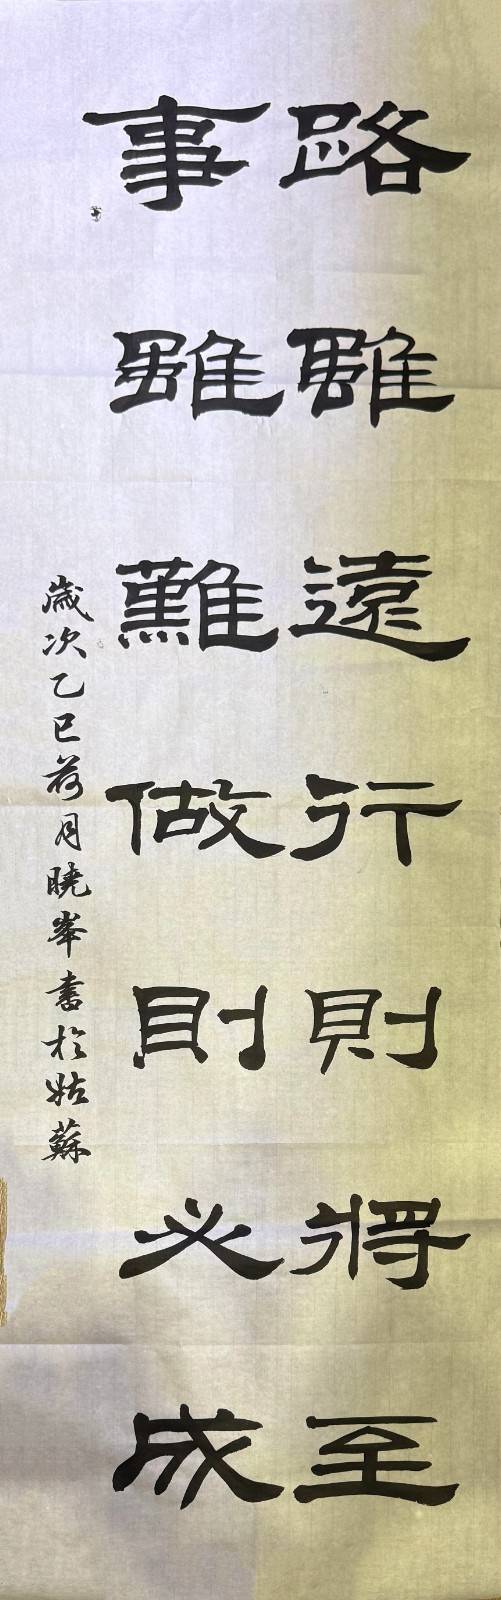 路雖遠行則將至
事雖難做則必成
歲次乙巳荷月曉峯書於姑蘇